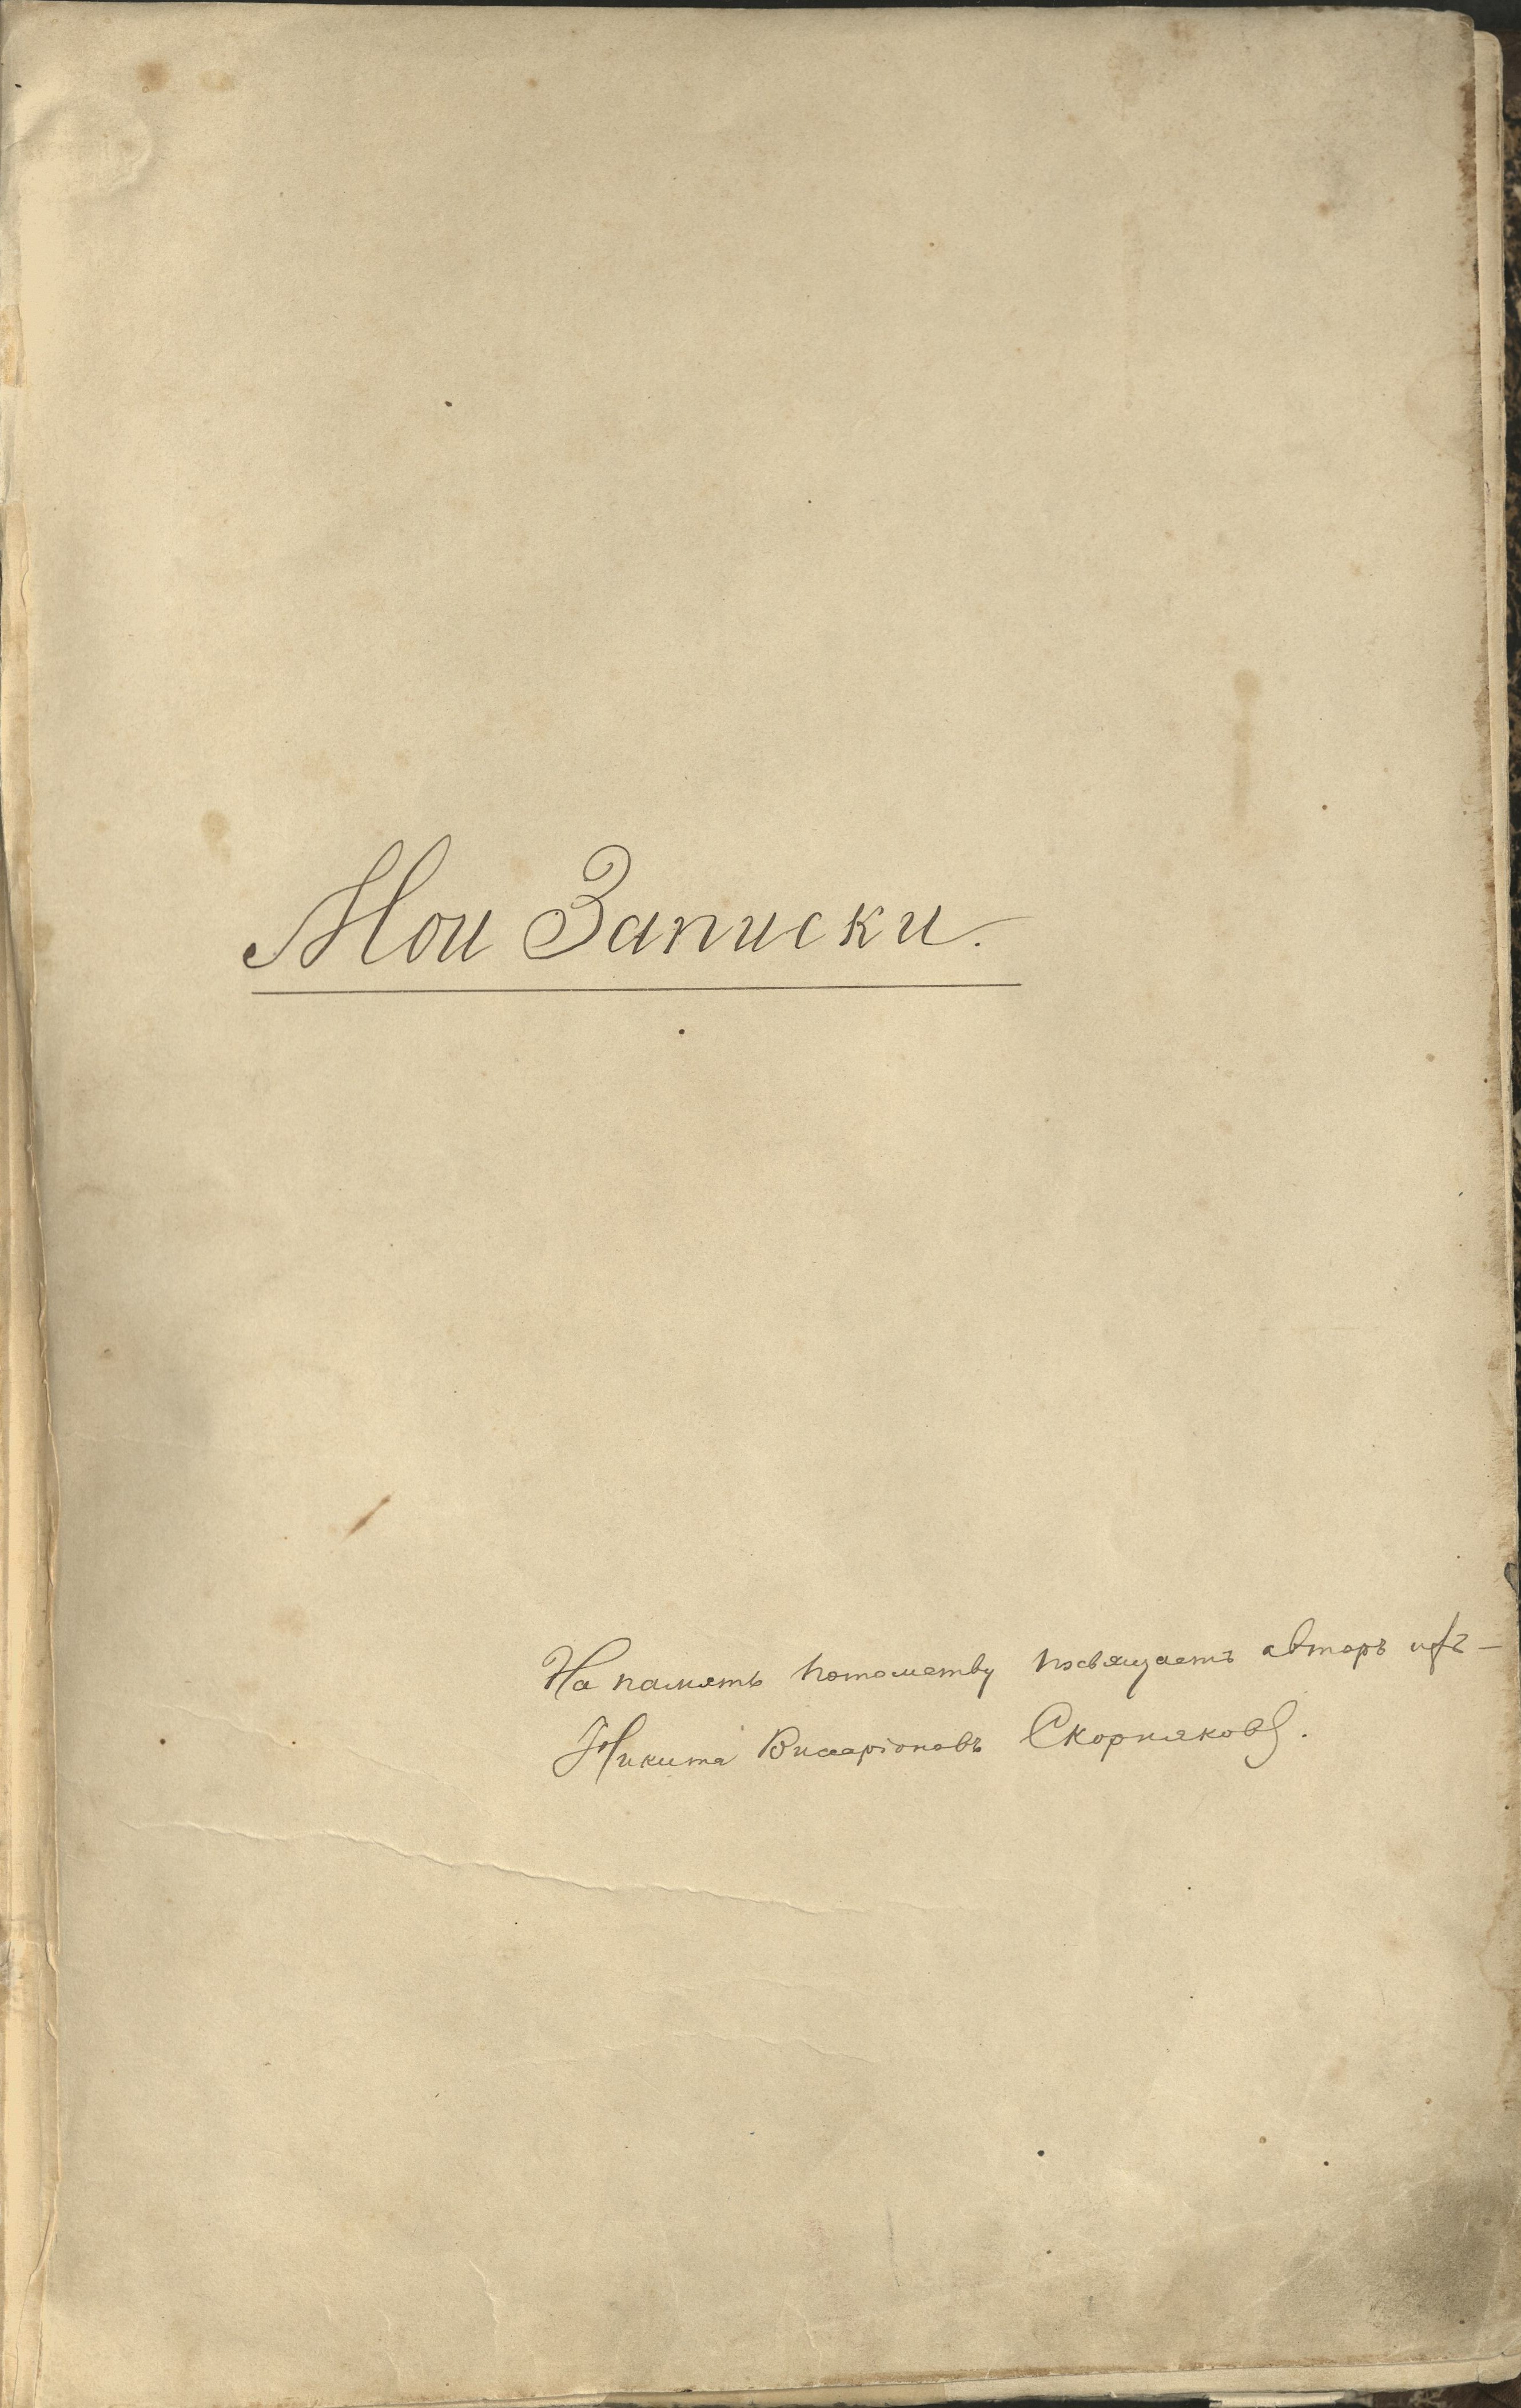 Мои Записки.
На память потомству посвящаетъ авторъ ихъ —
Никита Висаріоновъ Скорняковъ.